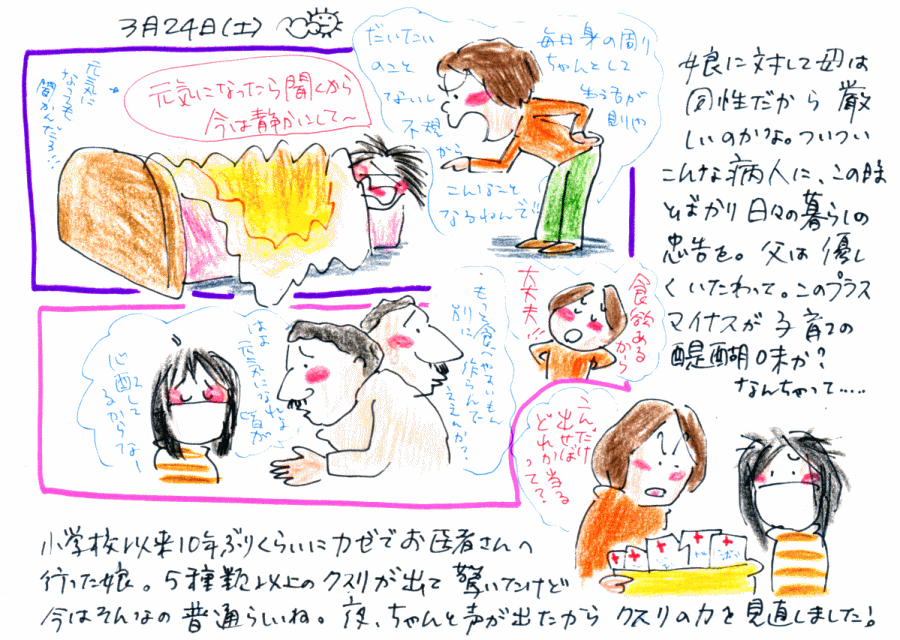 3月24日(土)
元気に
なっても
聞かんだろ…
元気になったら聞くから
今は静かにして〜
だいたい
のこと
ないし
不規
から
こんなこと
なるねんで!!
毎日身の周り
ちゃんとして
生活が
則や
娘に対して母は
同性だから厳
しいのかな。ついつい
こんな病人に、この時
とばかり日々の暮らしの
忠告を。父は優し
くいたわって。このプラス
マイナスが子育ての
醍醐味か?
なんちゃって……
食欲ある
から
大丈夫!!
もっと食べやすいもん
別に作らんで
ええんか?
父は元気になれよ
心配して
るからな〜
こんだけ
出せば
どれか当る
って?
小学校以来10年ぶりくらいにカゼでお医者さんへ
行った娘。5種類以上のクスリが出て驚いたけど
今はそんなの普通らしいね。夜、ちゃんと声が出たからクスリの力を見直しました!